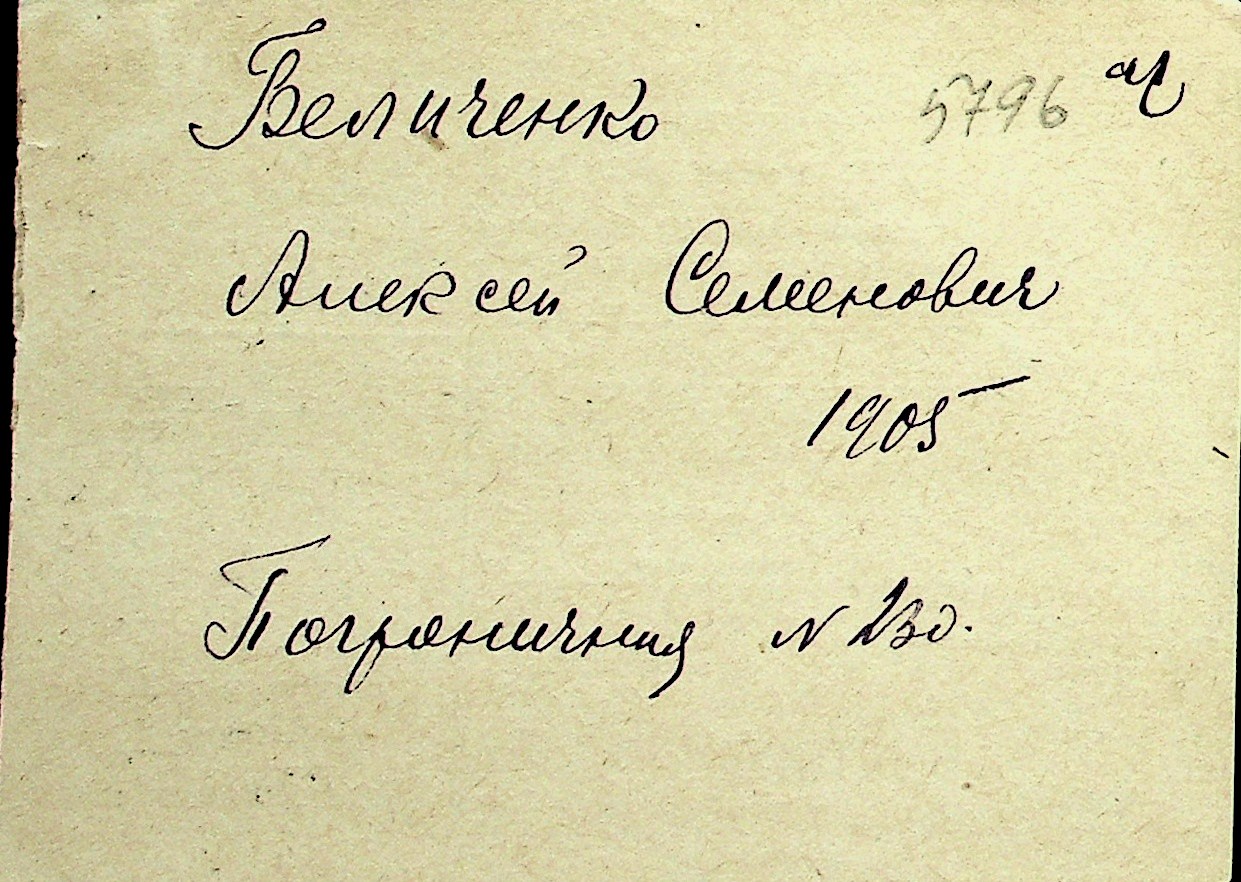 Величенко 5796
Алексей Семенович
1905
Пограничная N 230.